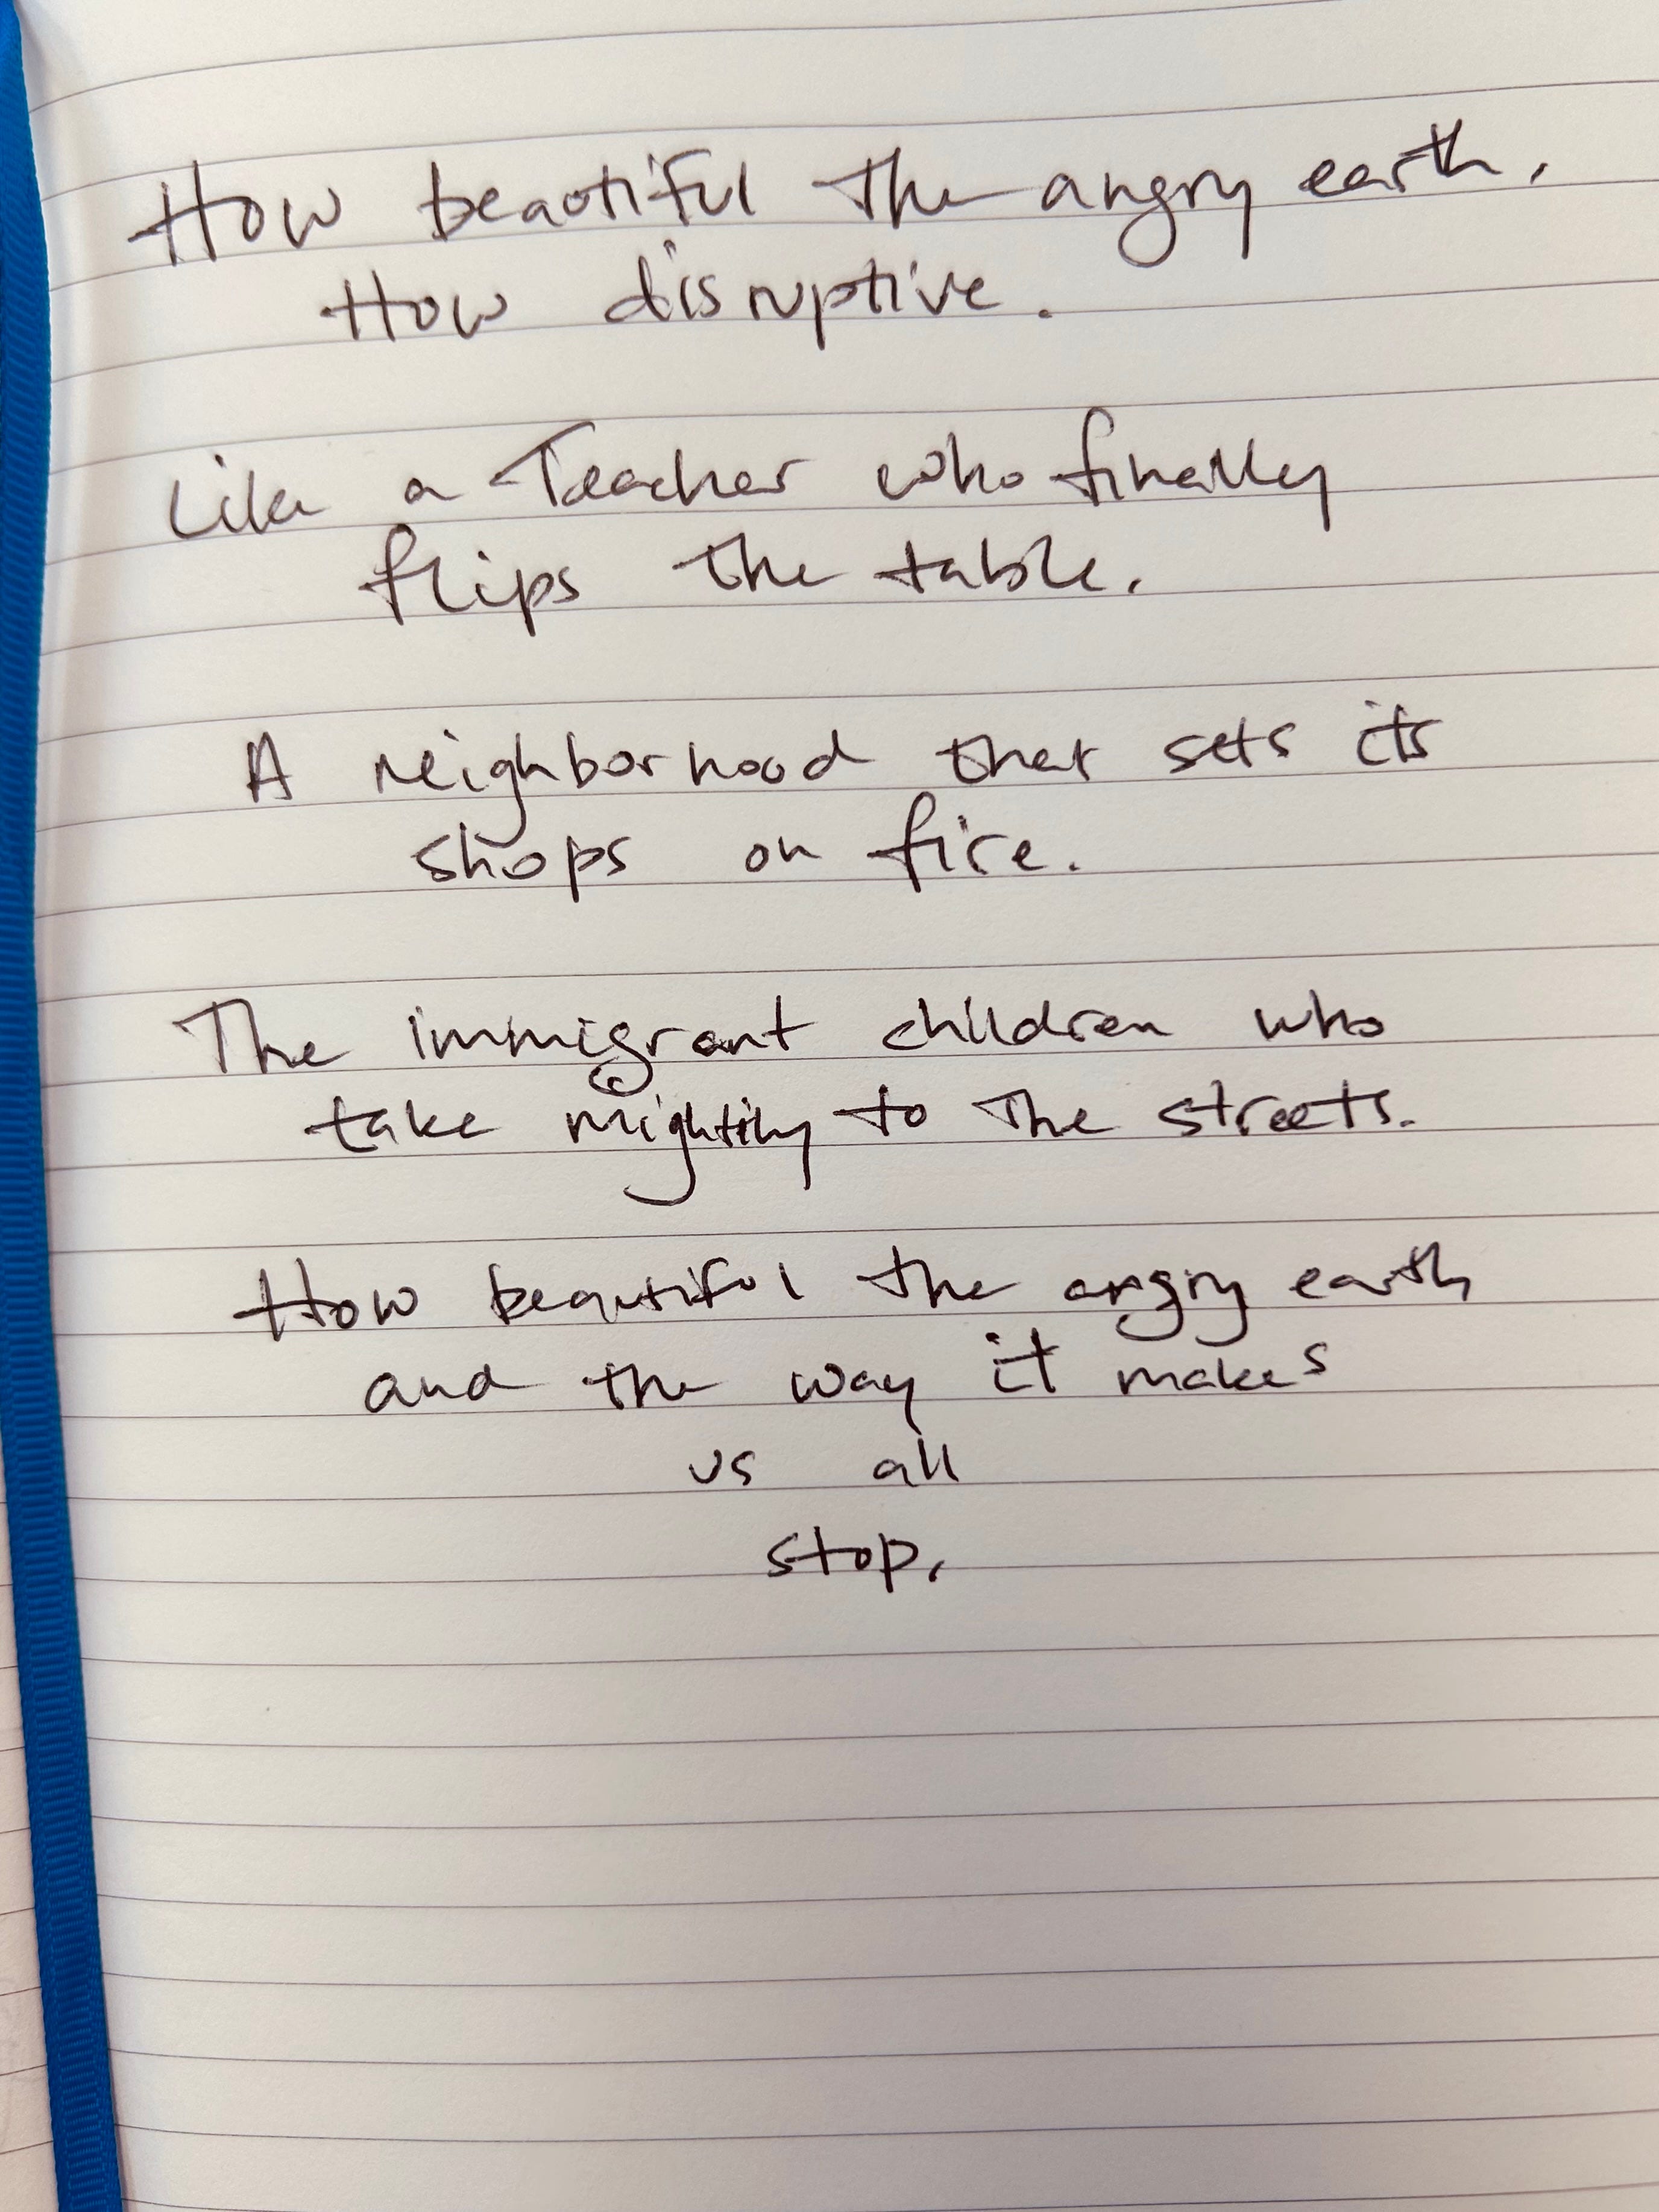 How beautiful the angry earth.
How disruptive.
Like a Teacher who finally
flips the table.
A neighborhood that sets its
shops on fire.
The immigrant children who
take mightily to the streets.
How beautiful the angry earth
and the way it makes
us all
stop.